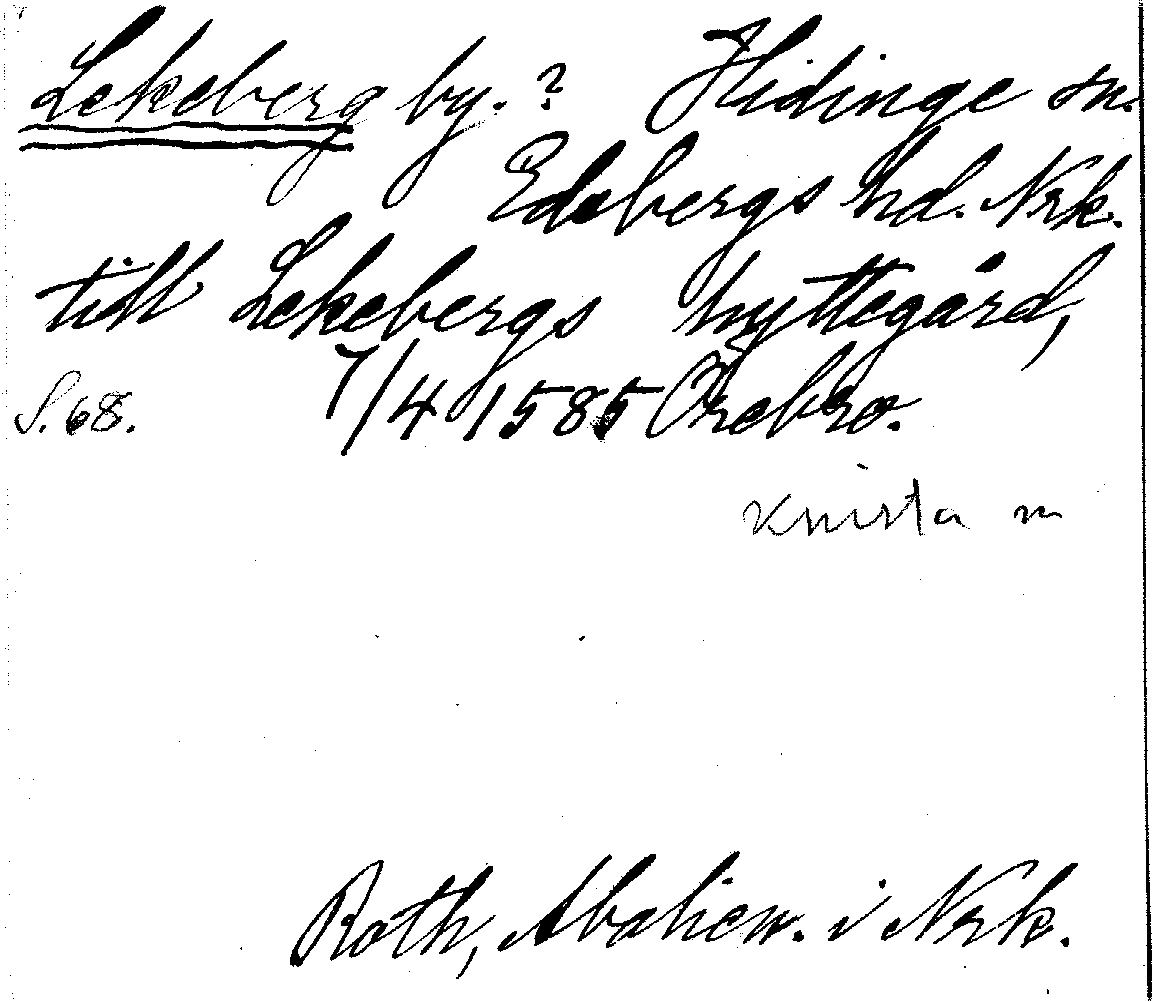 Lekeberg by. ? Hidinge sn.
Edsbergs hd. Nrk.
till Lekebergs hyttegård,
S. 68. 7/4 1585 Örebro.
Knista sn
Roth, Abalien. i Nrk.